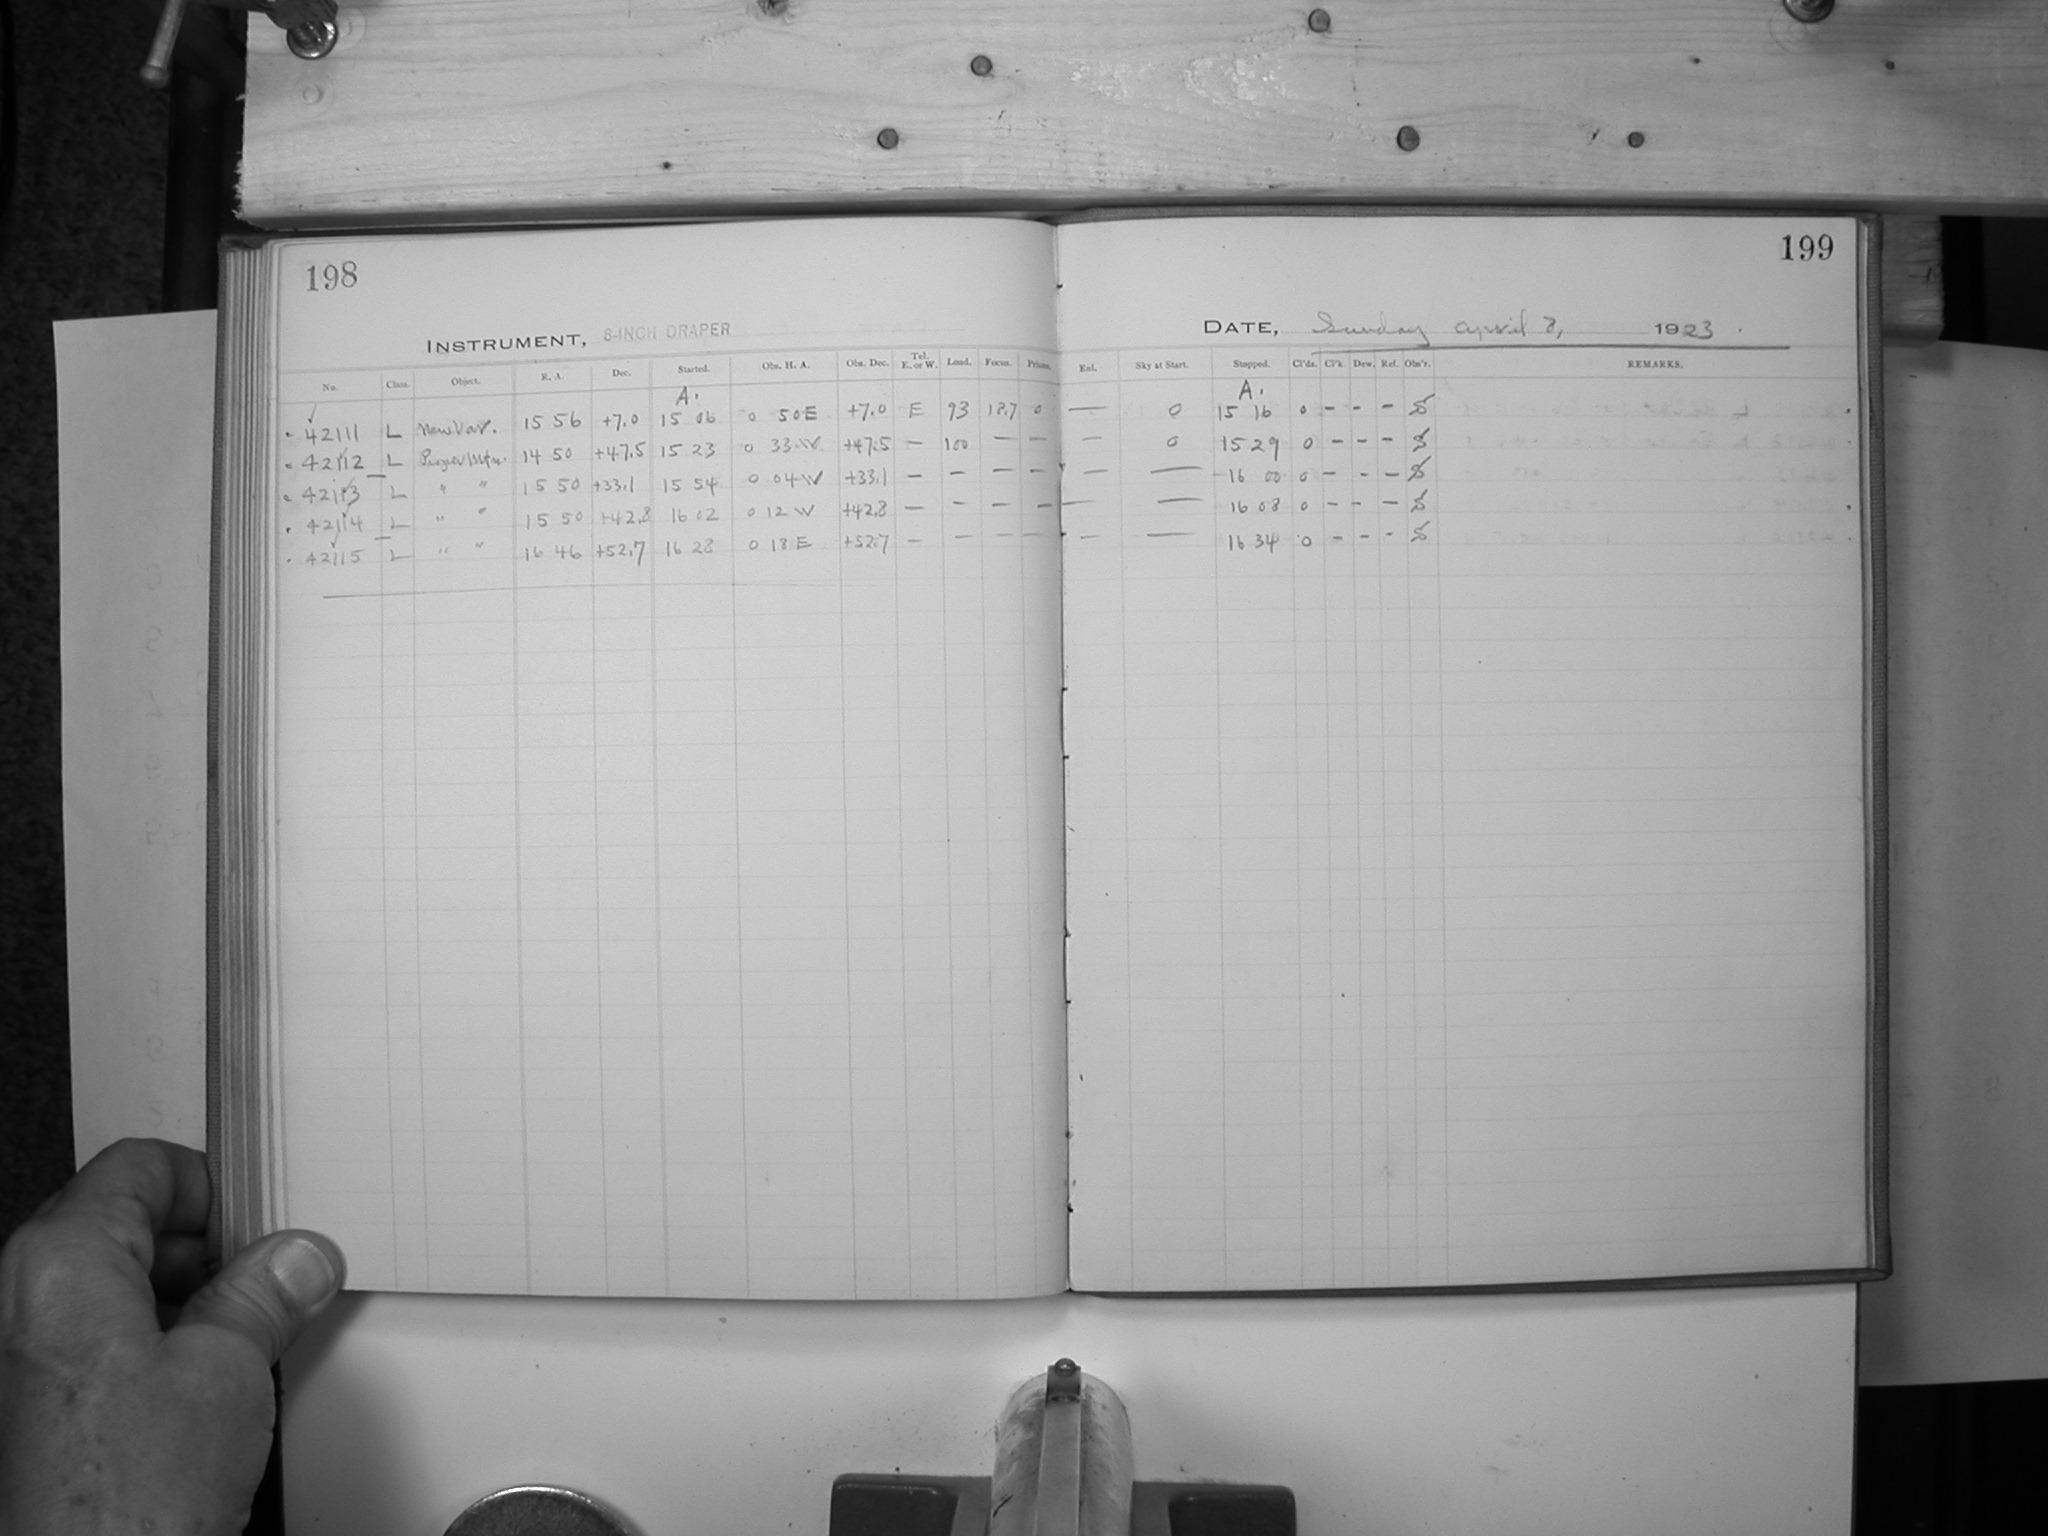 198
INSTRUMENT, 8-INCH DRAPER
No. Class. Object. R. A. Dec. Started. Obs. H. A. Obs. Dec. Tel. E. or W. Load. Focus. Prisms.
A.
42111 L New Var. 15 56 +7.0 15 06 0 50 E +7.0 E 93 18.7 0
42112 L Proper Motn. 14 50 +47.5 15 23 0 33 W +47.5 — 100 — —
42113 L " " 15 50 +33.1 15 54 0 04 W +33.1 — — — —
42114 L " " 15 50 +42.8 16 02 0 12 W +42.8 — — — —
42115 L " " 16 46 +52.7 16 28 0 18 E +52.7 — — — —
199
DATE, Sunday April 8, 1923.
Enl. Sky at Start. Stopped. Cl'ds. Cl'k. Dew. Ref. Obs'r. REMARKS.
A.
— 0 15 16 0 - - -
— 0 15 29 0 - - -
— — 16 00 0 - - -
— — 16 08 0 - - -
— — 16 34 0 - - -